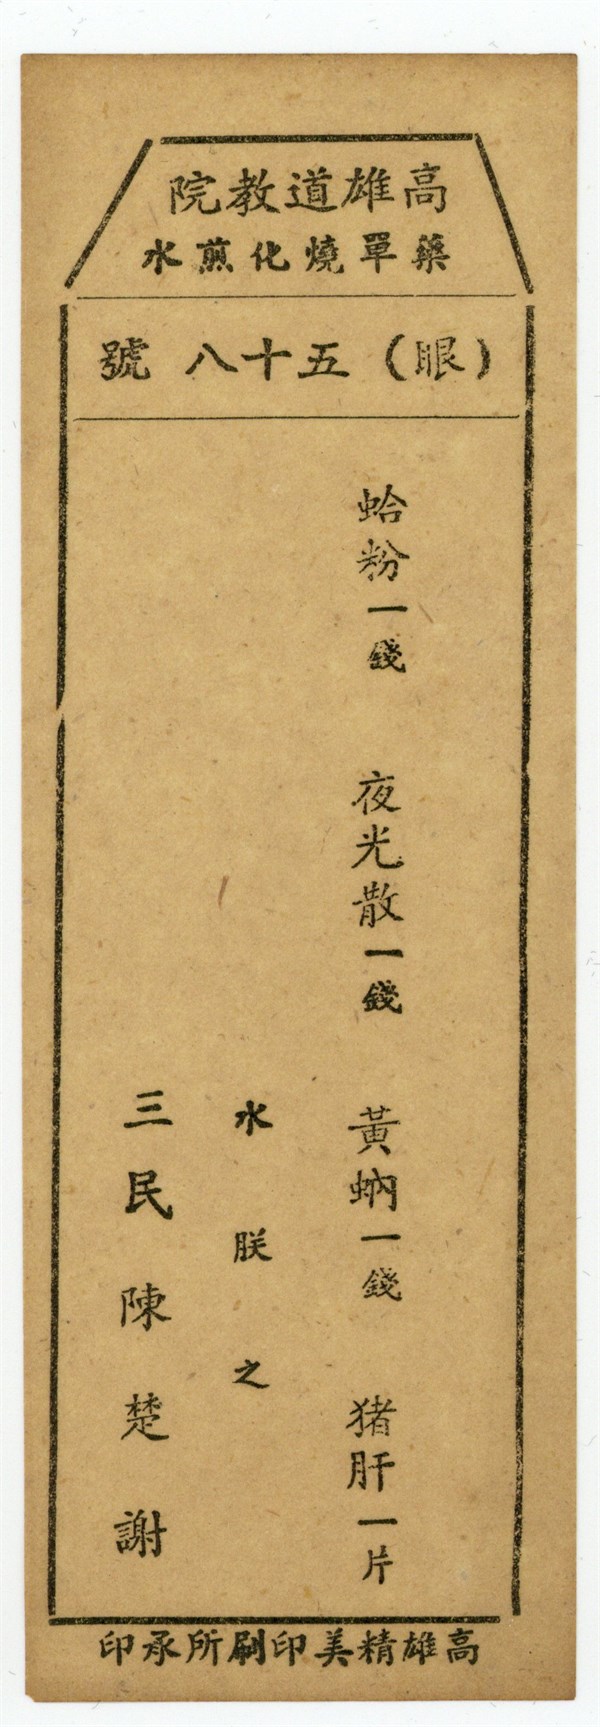 高雄道教院
藥單燒化煎水
(眼)五十八 號
蛤粉一錢 夜光散一錢 黃蚋一錢 猪肝一片
水朕之
三民陳楚謝
高雄精美印刷所承印